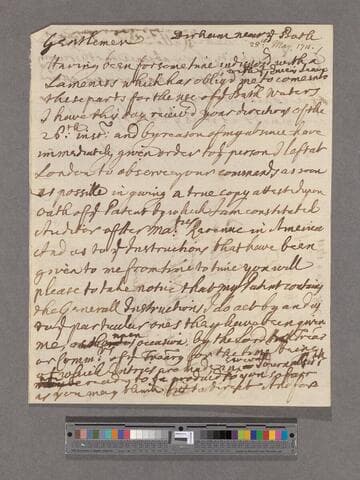 Gentlemen
Dirham near ye Bath
28th May 1715
Having been for some time indisposed with a
Lameness which has oblig'd me to come into
these parts for the use of ye Bath Waters
I have this day receiv'd your directions of the
26th inst. and by reason of my absence have
immediately given order to ye person I left at
London to observe your commands as soon
as possible in giving a true copy attested upon
oath of ye Patent by which I am constituted
Auditor of Her Maties Revenue in America
And as to ye Instructions that have been
given to me from time to time you will
please to take notice that my Patent contains
the Generall Instructions I do act by and if
particular ones they have been given
me, upon occasion, by the Lord Treasr
or Commrs of ye Treasry for the time being
of which Entrys are made in
be ready to be produced to you
as you may think fit to direct And for